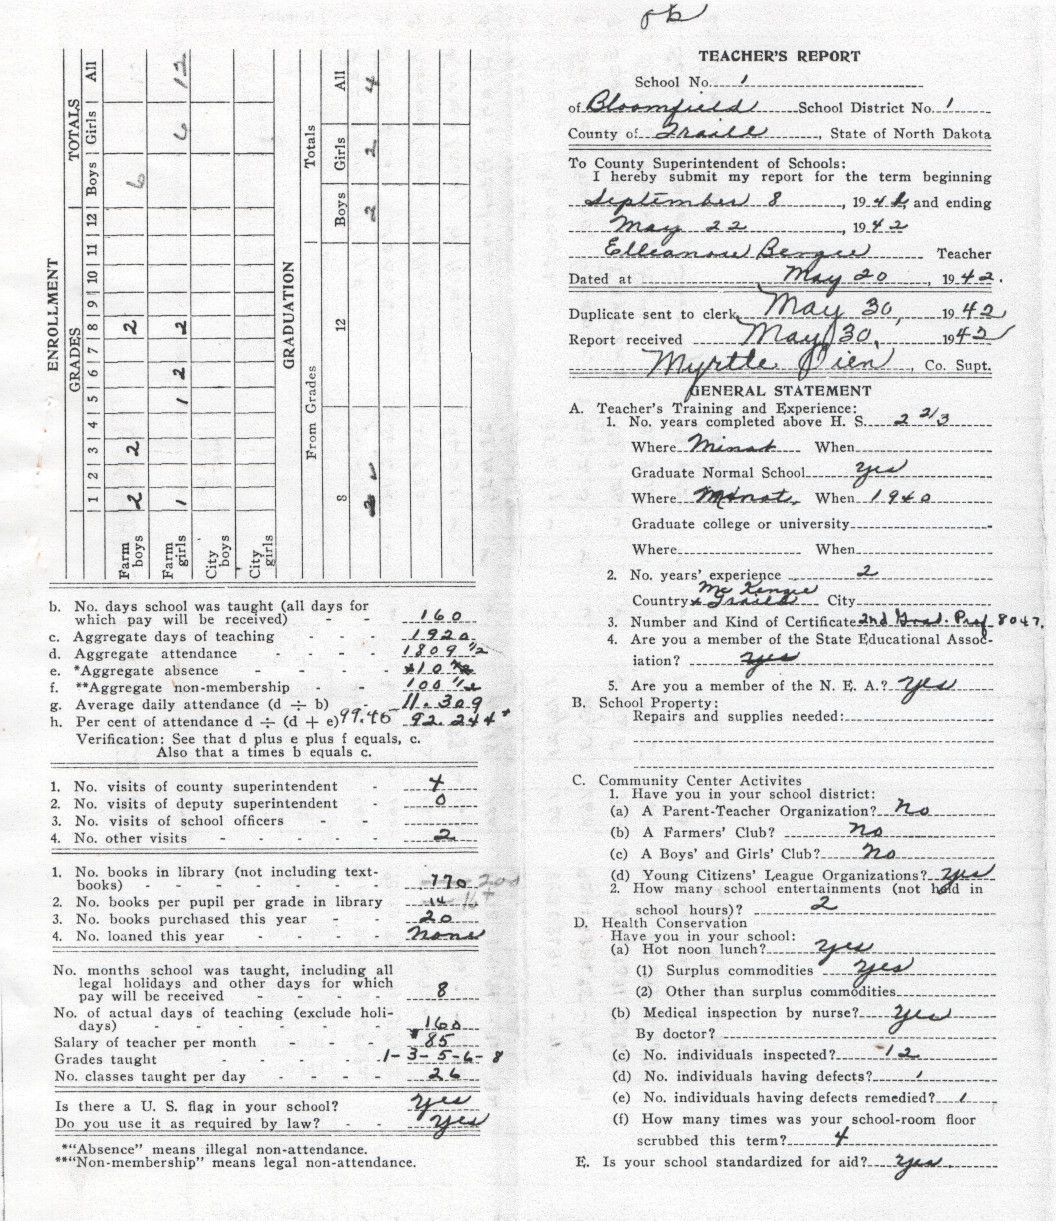 ok
ENROLLMENT
GRADES TOTALS
1 2 3 4 5 6 7 8 9 10 11 12 Boys Girls All
Farm boys 2 2 2 6
Farm girls 1 1 2 2 6 12
City boys
City girls
GRADUATION
From Grades Totals
8 12 Boys Girls All
2 2 4
b. No. days school was taught (all days for
which pay will be received) - - 160
c. Aggregate days of teaching - - - 1920
d. Aggregate attendance - - - - 1809 1/2
e. *Aggregate absence - - - - 10
f. **Aggregate non-membership - - 100 1/2
g. Average daily attendance (d ÷ b) - 11.309
h. Per cent of attendance d ÷ (d + e) 99.45 92.244+
Verification: See that d plus e plus f equals, c.
Also that a times b equals c.
1. No. visits of county superintendent - 4
2. No. visits of deputy superintendent - 0
3. No. visits of school officers - -
4. No. other visits - - - - - 2
1. No. books in library (not including text-
books) - - - - - - - 170 200
2. No. books per pupil per grade in library 14 16+
3. No. books purchased this year - - 20
4. No. loaned this year - - - - none
No. months school was taught, including all
legal holidays and other days for which
pay will be received - - - - 8
No. of actual days of teaching (exclude holi-
days) - - - - - - - 160
Salary of teacher per month - - - $85
Grades taught - - - - - 1-3-5-6-8
No. classes taught per day - - - 26
Is there a U. S. flag in your school? - yes
Do you use it as required by law? - - yes
*"Absence" means illegal non-attendance.
**"Non-membership" means legal non-attendance.
TEACHER'S REPORT
School No. 1
of Bloomfield School District No. 1
County of Traill, State of North Dakota
To County Superintendent of Schools:
I hereby submit my report for the term beginning
September 8, 1941, and ending
May 22, 1942
Elleanore Bergee Teacher
Dated at May 20, 1942.
Duplicate sent to clerk May 30, 1942
Report received May 30, 1942
Myrtle Dien, Co. Supt.
GENERAL STATEMENT
A. Teacher's Training and Experience:
1. No. years completed above H. S. 2 2/3
Where Minot When
Graduate Normal School yes
Where Minot. When 1940
Graduate college or university
Where When
2. No. years' experience 2
Country Mc Kenzie & Traill City
3. Number and Kind of Certificate 2nd Grad. Prof. 8047.
4. Are you a member of the State Educational Assoc-
iation? yes
5. Are you a member of the N. E. A.? Yes
B. School Property:
Repairs and supplies needed:
C. Community Center Activites
1. Have you in your school district:
(a) A Parent-Teacher Organization? no
(b) A Farmers' Club? no
(c) A Boys' and Girls' Club? no
(d) Young Citizens' League Organizations? yes
2. How many school entertainments (not held in
school hours)? 2
D. Health Conservation
Have you in your school:
(a) Hot noon lunch? yes
(1) Surplus commodities yes
(2) Other than surplus commodities
(b) Medical inspection by nurse? yes
By doctor?
(c) No. individuals inspected? 12
(d) No. individuals having defects? 1
(e) No. individuals having defects remedied? 1
(f) How many times was your school-room floor
scrubbed this term? 4
E. Is your school standardized for aid? yes.